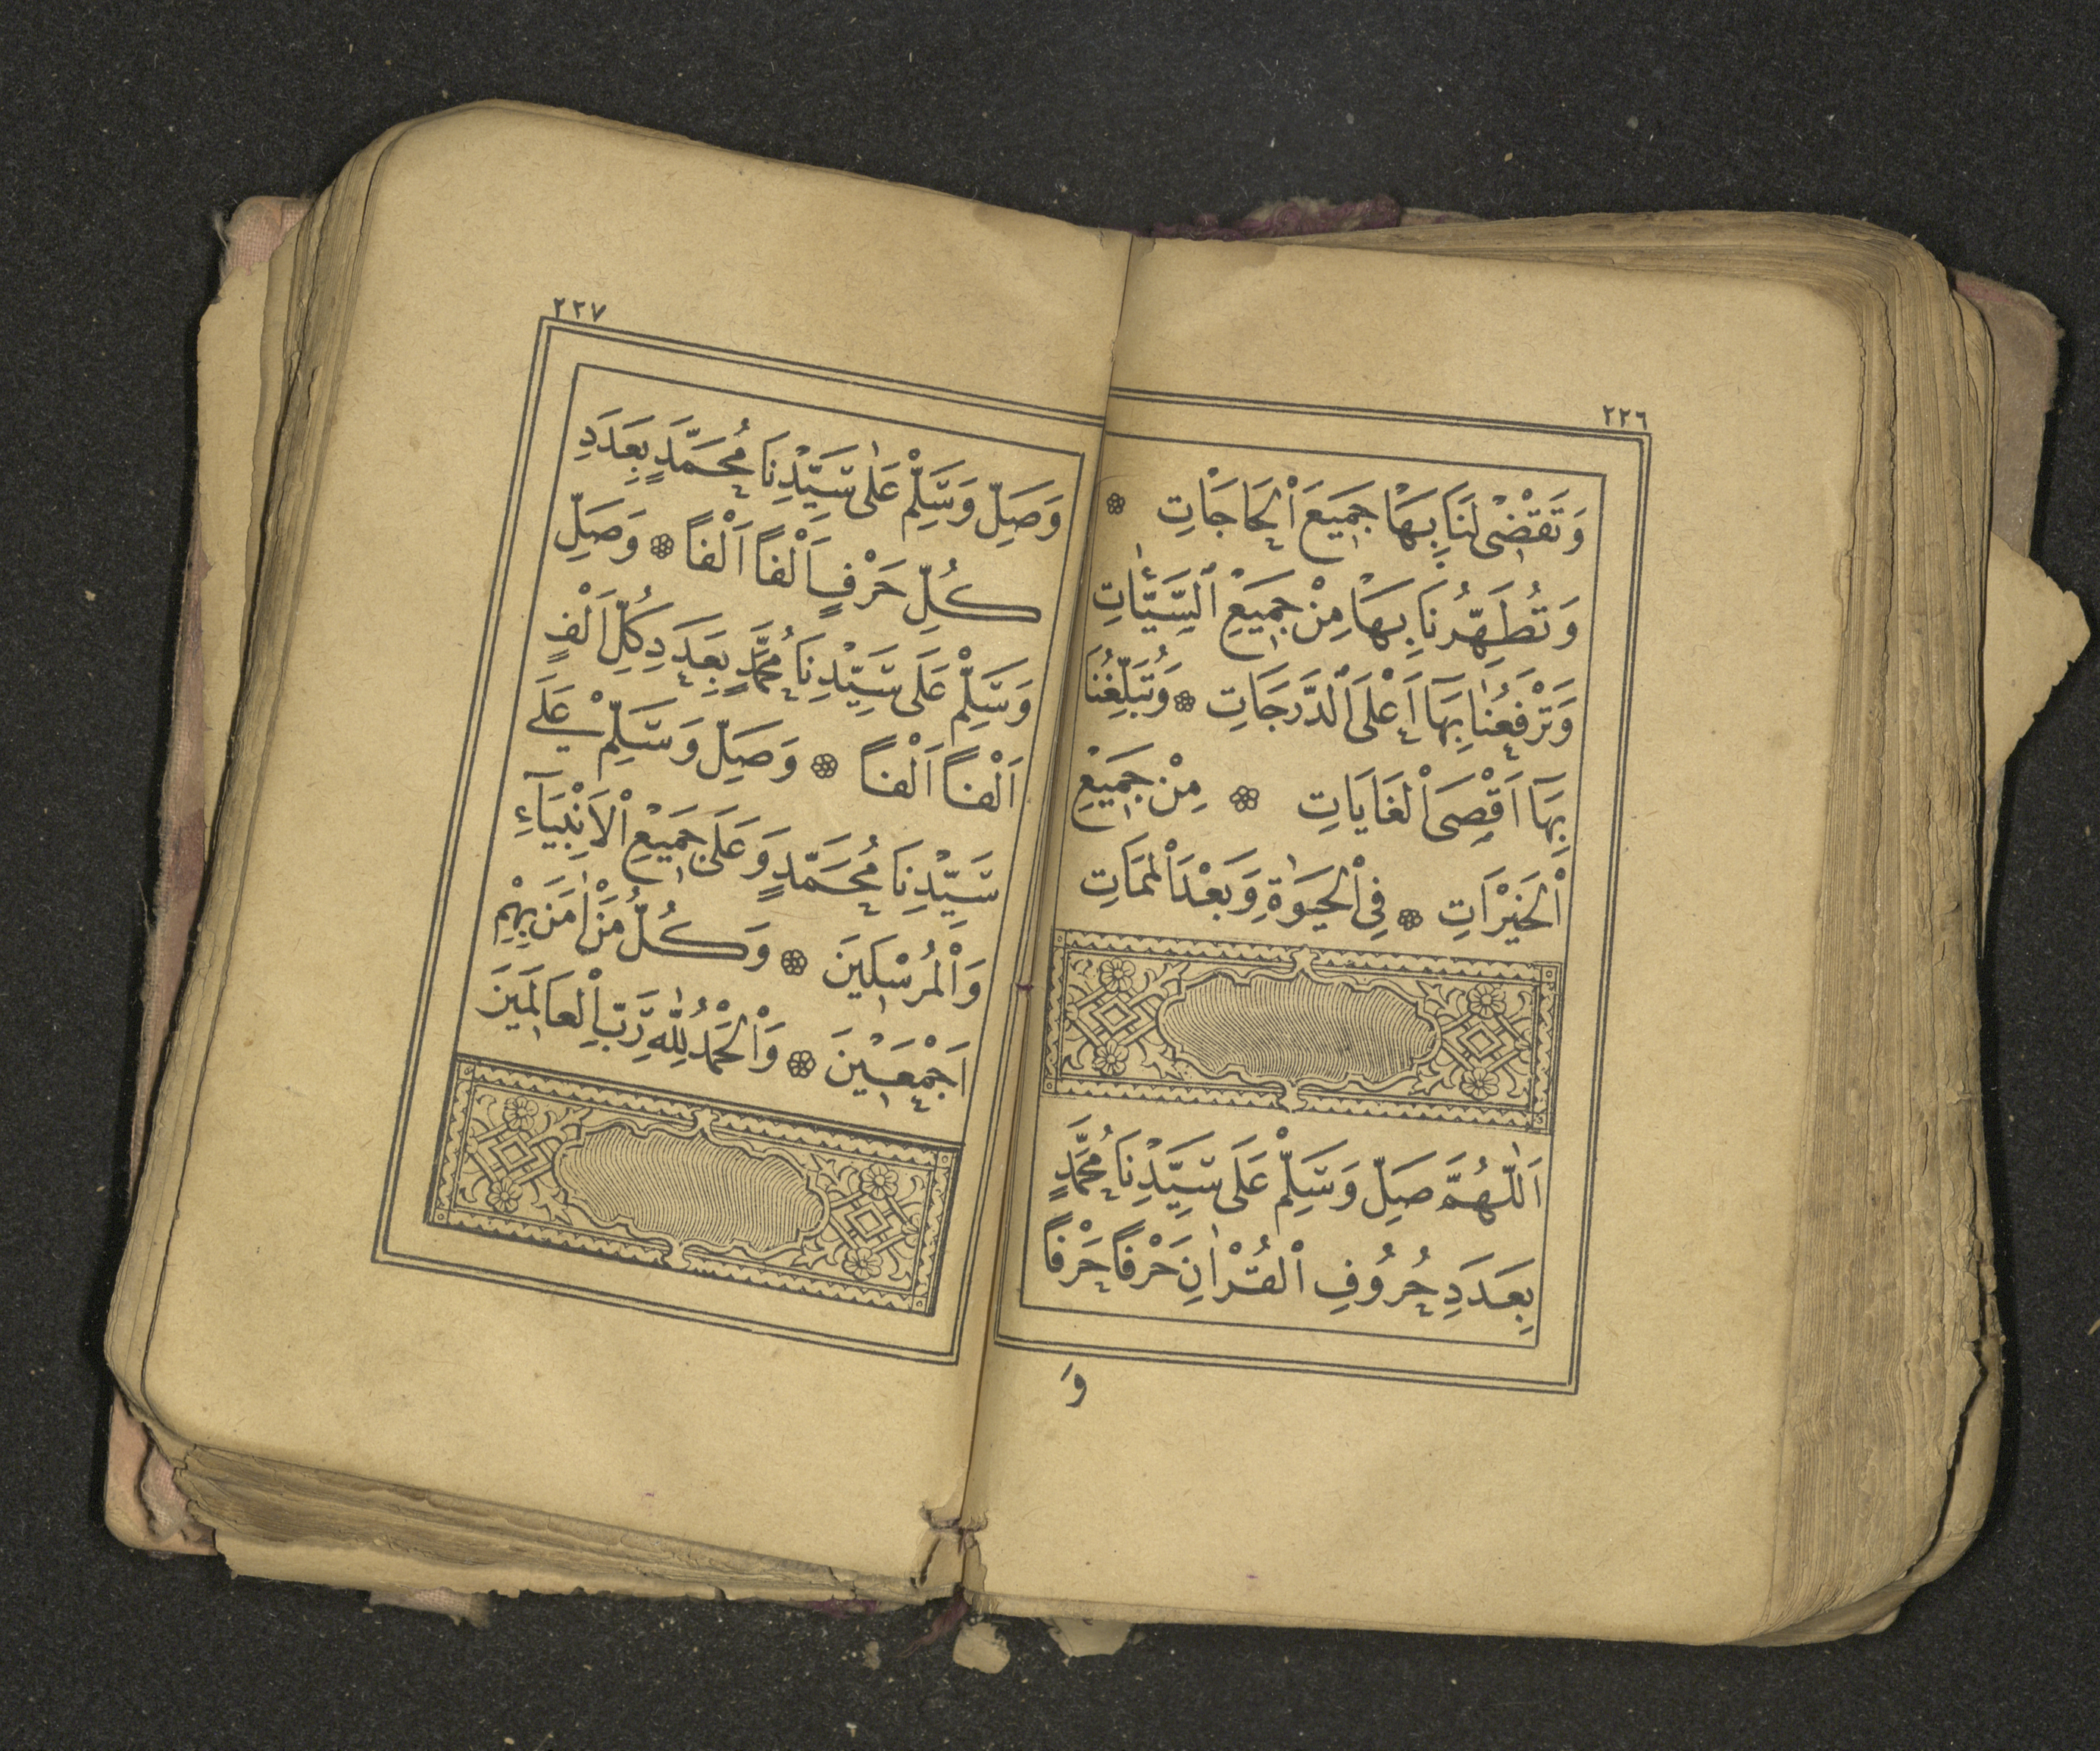 ٢٢٦
وَتَقْضٖى لَنَا بِهَا جَمٖيعَ الْحَاجَاتِ
وَتُطَهِّرُنَا بِهَا مِنْ جَمٖيعِ السَّيِّئَاتِ
وَتَرْفَعُنَا بِهَا اَعْلَى الدَّرَجَاتِ ۞ وَتُبَلِّغُنَا
بِهَا اَقْصَى الْغَايَاتِ ۞ مِنْ جَمٖيعِ
الْخَيْرَاتِ ۞ فِى الْحَيٰوةِ وَبَعْدَ الْمَمَاتِ
اَللّٰهُمَّ صَلِّ وَسَلِّمْ عَلَى سَيِّدِنَا مُحَمَّدٍ
بِعَدَدِ حُرُوفِ الْقُرْاٰنِ حَرْفًا حَرْفًا
وَ
٢٢٧
وَصَلِّ وَسَلِّمْ عَلٰى سَيِّدِنَا مُحَمَّدٍ بِعَدَدِ
كُلِّ حَرْفٍ اَلْفًا اَلْفًا ۞ وَصَلِّ
وَسَلِّمْ عَلَى سَيِّدِنَا مُحَمَّدٍ بِعَدَدِ كُلِّ اَلْفٍ
اَلْفًا اَلْفًا ۞ وَصَلِّ وَسَلِّمْ عَلَى
سَيِّدِنَا مُحَمَّدٍ وَعَلَى جَمٖيعِ الْاَنْبِيَآءِ
وَالْمُرْسَلٖينَ ۞ وَكُلُّ مَنْ اٰمَنَ بِهِمْ
اَجْمَعٖينَ ۞ وَالْحَمْدُ لِلّٰهِ رَبِّ الْعَالَمٖينَ